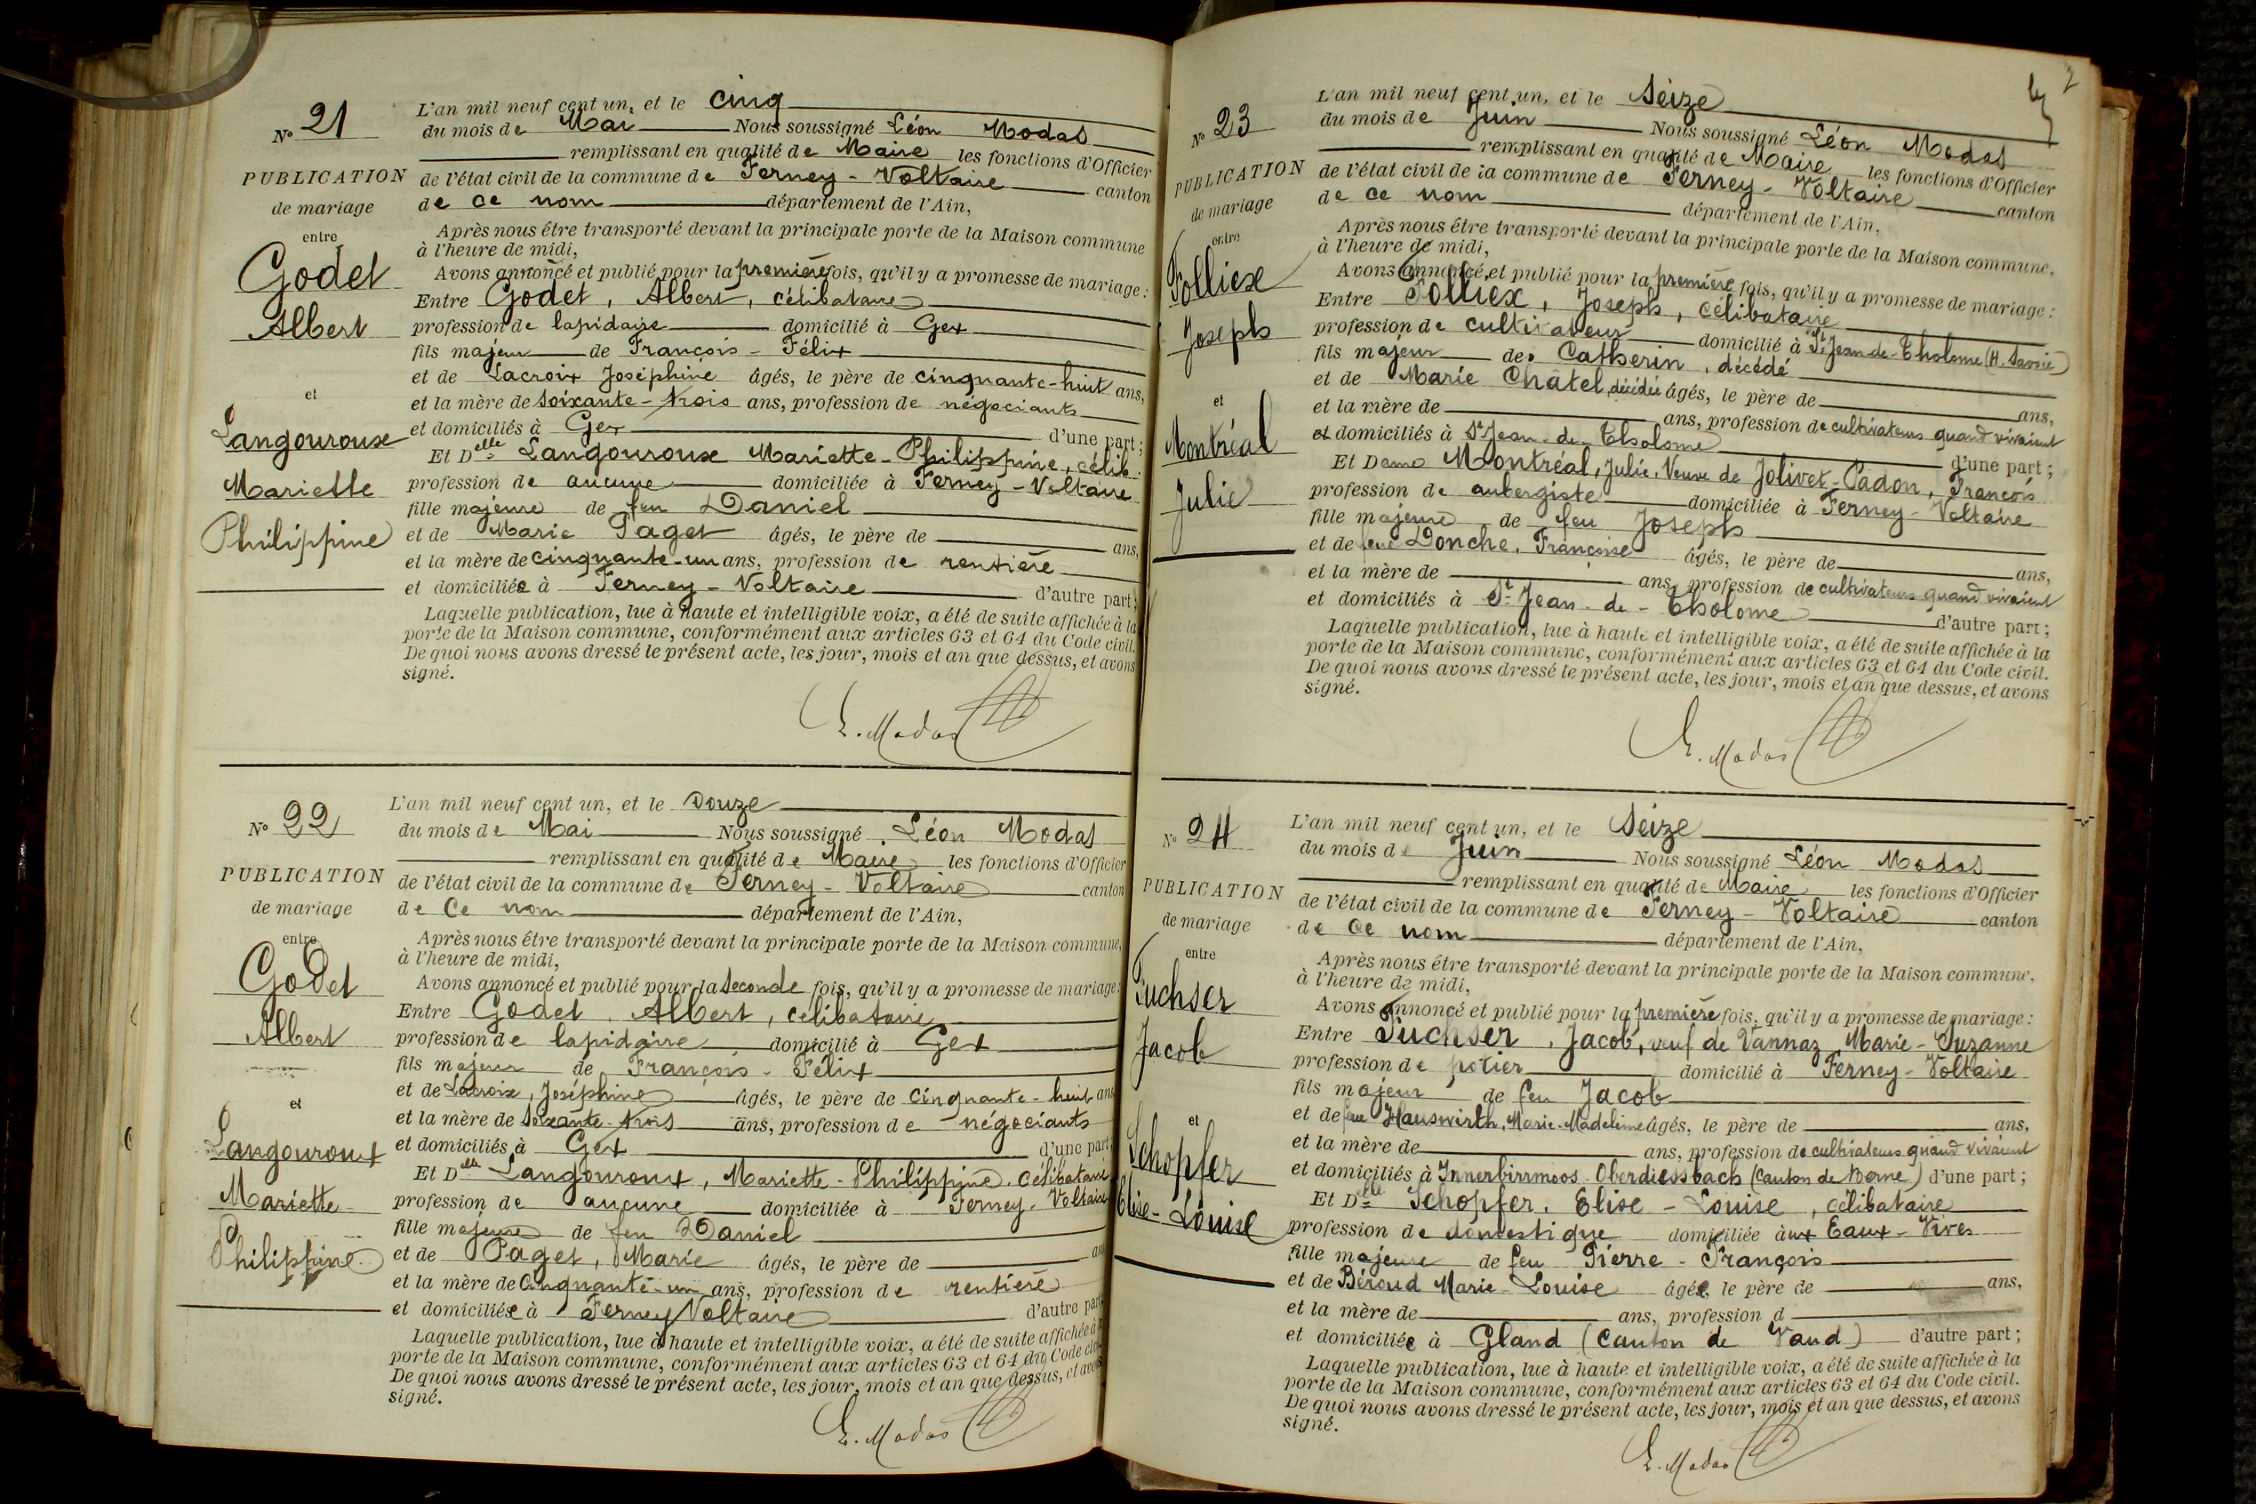 N° 21
PUBLICATION
de mariage
entre
Godet
Albert
et
Langouroux
Mariette
Philippine
L'an mil neuf cent un, et le cinq
du mois de Mai Nous soussigné Léon Modas
remplissant en qualité de Maire les fonctions d'Officier
de l'état civil de la commune de Ferney-Voltaire canton
de ce nom département de l'Ain,
Après nous être transporté devant la principale porte de la Maison commune
à l'heure de midi,
Avons annoncé et publié pour la première fois, qu'il y a promesse de mariage :
Entre Godet, Albert, célibataire
profession de lapidaire domicilié à Gex
fils majeur de François-Félix
et de Lacroix Joséphine âgés, le père de cinquante-huit ans,
et la mère de soixante-trois ans, profession de négociants
et domiciliés à Gex d'une part ;
Et Delle Langouroux Mariette-Philippine, célib.
profession de aucune domiciliée à Ferney-Voltaire
fille majeure de feu Daniel
et de Marie Paget âgés, le père de ans,
et la mère de cinquante-un ans, profession de rentière
et domiciliée à Ferney-Voltaire d'autre part ;
Laquelle publication, lue à haute et intelligible voix, a été de suite affichée à la
porte de la Maison commune, conformément aux articles 63 et 64 du Code civil.
De quoi nous avons dressé le présent acte, les jour, mois et an que dessus, et avons
signé.
L. Modas
N° 22
PUBLICATION
de mariage
entre
Godet
Albert
et
Langouroux
Mariette
Philippine
L'an mil neuf cent un, et le Douze
du mois de Mai Nous soussigné Léon Modas
remplissant en qualité de Maire les fonctions d'Officier
de l'état civil de la commune de Ferney-Voltaire canton
de Ce nom département de l'Ain,
Après nous être transporté devant la principale porte de la Maison commune,
à l'heure de midi,
Avons annoncé et publié pour la Seconde fois, qu'il y a promesse de mariage :
Entre Godet, Albert, célibataire
profession de lapidaire domicilié à Gex
fils majeur de François-Félix
et de Lacroix, Joséphine âgés, le père de cinquante-huit ans
et la mère de soixante-trois ans, profession de négociants
et domiciliés à Gex d'une part
Et Delle Langouroux, Mariette-Philippine, célibataire
profession de aucune domiciliée à Ferney-Voltaire
fille majeure de feu Daniel
et de Paget, Marie âgés, le père de an
et la mère de cinquante-un ans, profession de rentière
et domiciliée à Ferney Voltaire d'autre part
Laquelle publication, lue à haute et intelligible voix, a été de suite affichée à
porte de la Maison commune, conformément aux articles 63 et 64 du Code
De quoi nous avons dressé le présent acte, les jour, mois et an que dessus, et avons
signé.
L. Modas
N° 23
PUBLICATION
de mariage
entre
Folliex
Joseph
et
Montréal
Julie
L'an mil neuf cent un, et le Seize
du mois de Juin Nous soussigné Léon Modas
remplissant en qualité de Maire les fonctions d'Officier
de l'état civil de la commune de Ferney-Voltaire canton
de ce nom département de l'Ain,
Après nous être transporté devant la principale porte de la Maison commune,
à l'heure de midi,
Avons annoncé et publié pour la première fois, qu'il y a promesse de mariage :
Entre Folliex, Joseph, célibataire
profession de cultivateur domicilié à St Jean-de-Tholome (H. Savoie)
fils majeur de Catherin, décédé
et de Marie Châtel, décédée âgés, le père de ans,
et la mère de ans, profession de cultivateurs quand vivaient
et domiciliés à St Jean-de-Tholome d'une part ;
Et Dame Montréal, Julie, Veuve de Jolivet-Padon, François
profession de aubergiste domiciliée à Ferney-Voltaire
fille majeure de feu Joseph
et de feue Donche, Françoise âgés, le père de ans,
et la mère de ans, profession de cultivateurs quand vivaient
et domiciliés à St Jean-de-Tholome d'autre part ;
Laquelle publication, lue à haute et intelligible voix, a été de suite affichée à la
porte de la Maison commune, conformément aux articles 63 et 64 du Code civil.
De quoi nous avons dressé le présent acte, les jour, mois et an que dessus, et avons
signé.
L. Modas
N° 24
PUBLICATION
de mariage
entre
Fuchser
Jacob
et
Schopfer
Elise-Louise
L'an mil neuf cent un, et le Seize
du mois de Juin Nous soussigné Léon Modas
remplissant en qualité de Maire les fonctions d'Officier
de l'état civil de la commune de Ferney-Voltaire canton
de ce nom département de l'Ain,
Après nous être transporté devant la principale porte de la Maison commune,
à l'heure de midi,
Avons annoncé et publié pour la première fois, qu'il y a promesse de mariage :
Entre Fuchser, Jacob, veuf de Vannaz Marie-Suzanne
profession de potier domicilié à Ferney-Voltaire
fils majeur de feu Jacob
et de feue Hauswirth, Marie-Madeleine âgés, le père de ans,
et la mère de ans, profession de cultivateurs quand vivaient
et domiciliés à Innerbirrmoos Oberdiessbach (canton de Berne) d'une part ;
Et Delle Schopfer, Elise-Louise, célibataire
profession de domestique domiciliée aux Eaux-Vives
fille majeure de feu Pierre-François
et de Béroud Marie-Louise âgée, le père de ans,
et la mère de ans, profession d
et domiciliée à Gland (canton de Vaud) d'autre part ;
Laquelle publication, lue à haute et intelligible voix, a été de suite affichée à la
porte de la Maison commune, conformément aux articles 63 et 64 du Code civil.
De quoi nous avons dressé le présent acte, les jour, mois et an que dessus, et avons
signé.
L. Modas